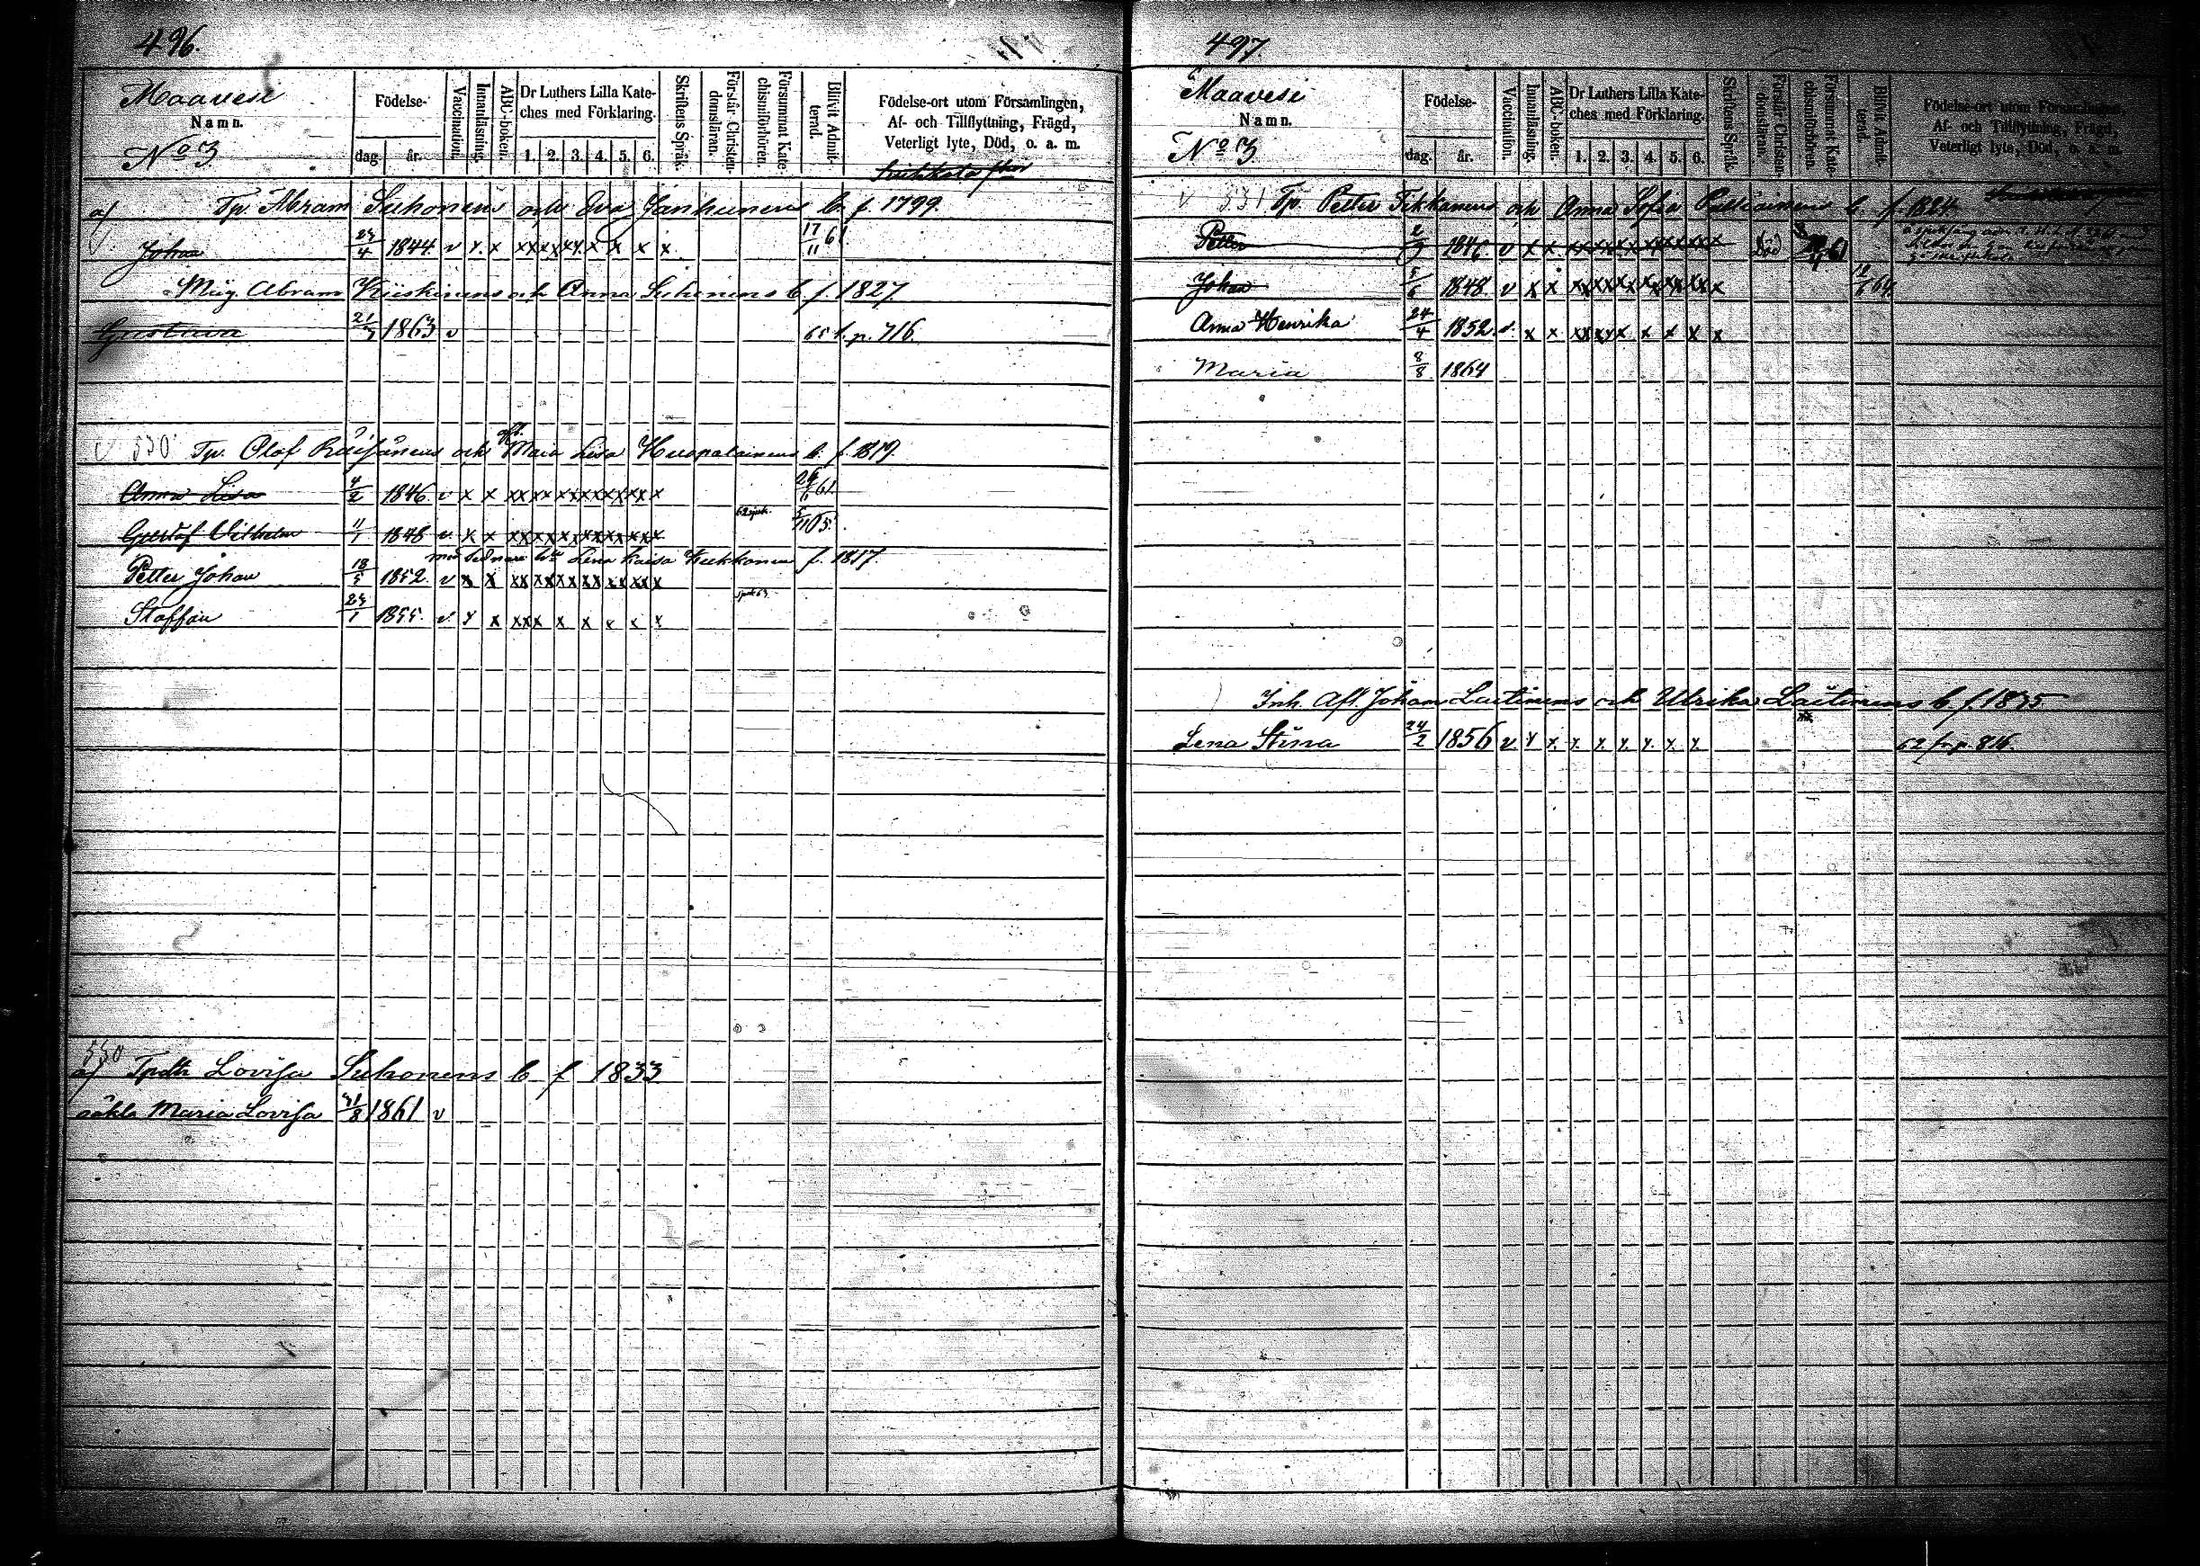 496.
Maavesi
Namn.
No 3
Födelse-
dag. år.
Vaccination.
Innanläsning.
ABC-boken.
Dr Luthers Lilla Kate-
ches med Förklaring.
1. 2. 3. 4. 5. 6.
Skriftens Språk.
Förstår Christen-
domsläran.
Försummat Kate-
chismiförhören.
Blifvit Admit-
terad.
Födelse-ort utom Församlingen,
Af- och Tillflyttning, Frägd,
Veterligt lyte, Död, o. a. m.
a) Tp. Abram Suhonens och Eva Janhunens b. f. 1799.
Johan 23/4 1844. v x x xxxx xx x x x x 17/11 61
Abram Kiiskinens och Anna Suhonens b. f. 1827
Gustava 21/7 1863 v 65 t. p. 716.
v 530 Tp. Olof Räisänens och Maria Lisa Huopalainens b. f. 1819.
Anna Lisa 4/2 1846. v x x xx xx xx xx xx xx x 24/6 61
Gustaf Vilhelm 11/1 1848 v x x xx xx xx xx xx xx x 5/11 65.
Lena Kaisa Kukkonen f. 1817.
Petter Johan 18/5 1852. v x x xx xx xx xx xx xx x
Staffan 23/1 1855. v x x xxx x x x x x
530
a) Tpdtr Lovisa Suhonens b f 1833
oäkta Maria Lovisa 31/8 1861 v
497.
Maavesi
Namn.
No 3.
Födelse-
dag. år.
Vaccination.
Innanläsning.
ABC-boken.
Dr Luthers Lilla Kate-
ches med Förklaring.
1. 2. 3. 4. 5. 6.
Skriftens Språk.
Förstår Christen-
domsläran.
Försummat Kate-
chismiförhören.
Blifvit Admit-
terad.
Födelse-ort utom Församlingen,
Af- och Tillflyttning, Frägd,
Veterligt lyte, Död, o. a. m.
v 531 Tp. Petter Tikkanens och Anna Sofia b. f. 1824.
Petter 1846. v x x xx xx xx xx xx xx x Död 61
Johan 5/6 1848. v x x xx xx xx xx xx xx x 64
Anna Henrika 24/4 1852. v. x x xx xx x x x x x
Maria 8/8 1864
Inh. Aft. Johan Laitinens och Ulrika Laitinens b. f. 1835
Lena Stina 24/2 1856 v x x x x x x x x 62 fr p. 816.